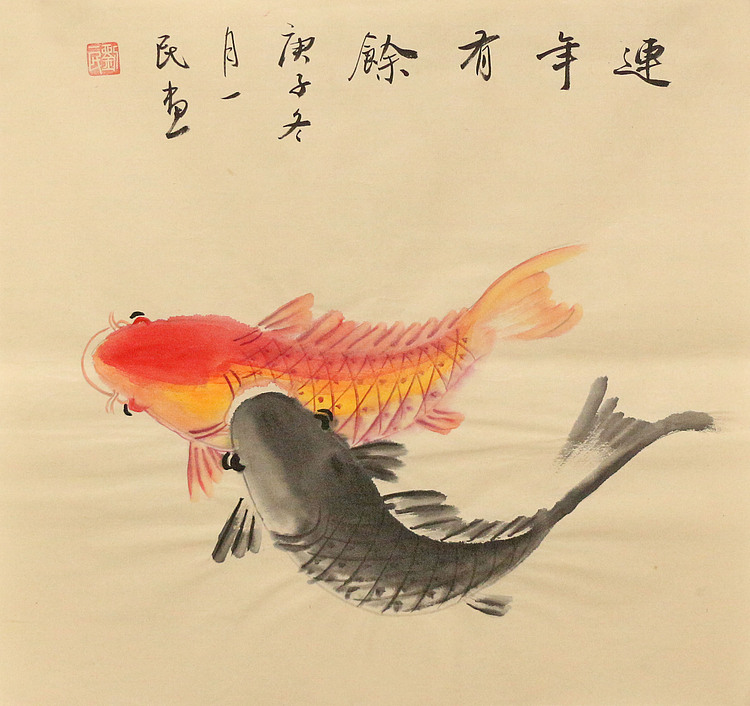 連年有餘
庚子冬
月一
民畫